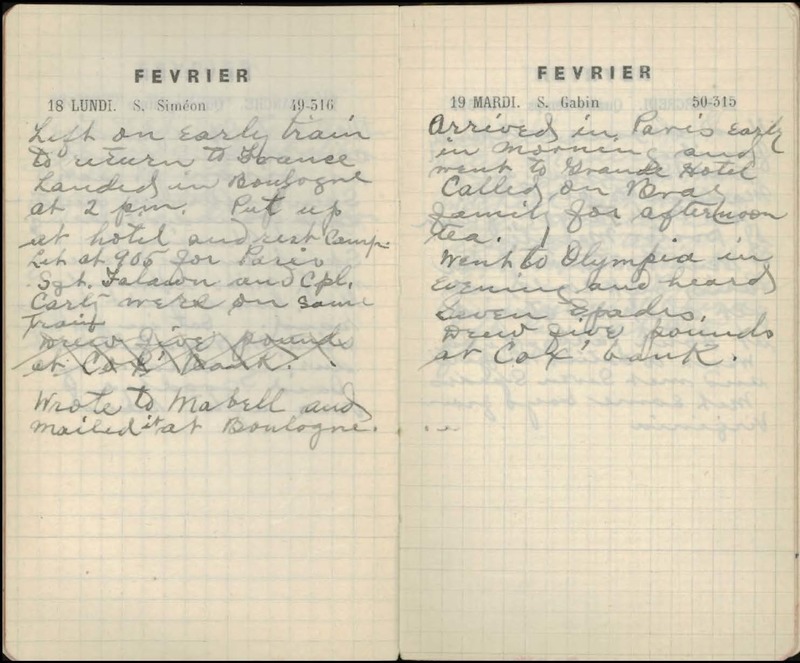 FEVRIER
18 LUNDI. S. Siméon 49-316
Left on early train
to return to France
Landed in Boulogne
at 2 p.m. Put up
at hotel and rest Camp.
Left at 905 for Paris
Sgt. and Cpl.
were on same
train
Drew five pounds
at Cox' bank.
Wrote to Mabell and
mailed it at Boulogne.
FEVRIER
19 MARDI. S. Gabin 50-315
Arrived in Paris early
in morning and
went to Grande Hotel
Called on
family for afternoon
tea.
Went to Olympia in
evening and heard
Seven Spades.
Drew five pounds
at Cox' bank.